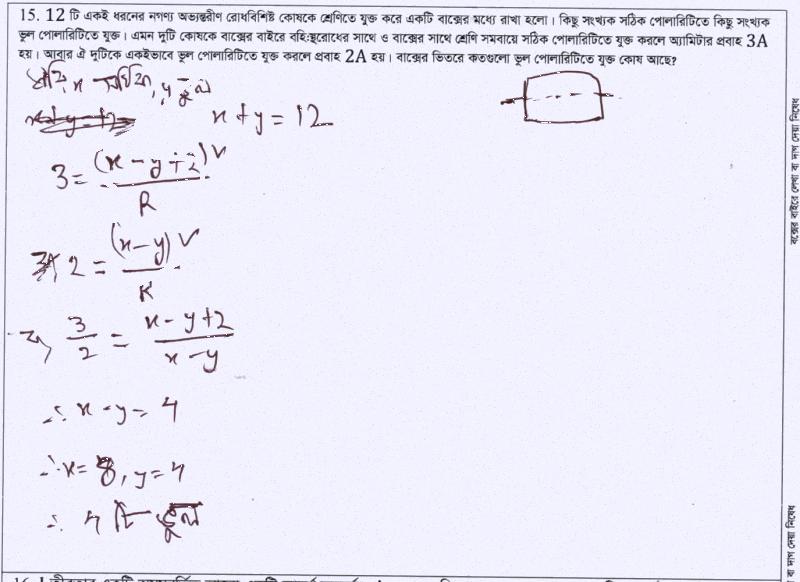 15. 12 টি একই ধরনের নগণ্য অভ্যন্তরীণ রোধবিশিষ্ট কোষকে শ্রেণিতে যুক্ত করে একটি বাক্সের মধ্যে রাখা হলো। কিছু সংখ্যক সঠিক পোলারিটিতে কিছু সংখ্যক
ভুল পোলারিটিতে যুক্ত। এমন দুটি কোষকে বাক্সের বাইরে বহিঃস্থরোধের সাথে ও বাক্সের সাথে শ্রেণি সমবায়ে সঠিক পোলারিটিতে যুক্ত করলে অ্যামিটার প্রবাহ 3A
হয়। আবার ঐ দুটিকে একইভাবে ভুল পোলারিটিতে যুক্ত করলে প্রবাহ 2A হয়। বাক্সের ভিতরে কতগুলো ভুল পোলারিটিতে যুক্ত কোষ আছে?
ধরি, x সঠিক, y ভুল
x + y = 12
3 = (x - y + 2) V / R
2 = (x - y) V / R
⇒ 3/2 = x - y + 2 / x - y
∴ x - y = 4
∴ x = 8, y = 4
∴ 4 টি ভুল
বক্সের বাইরে লেখা বা দাগ দেয়া নিষেধ
বা দাগ দেয়া নিষেধ